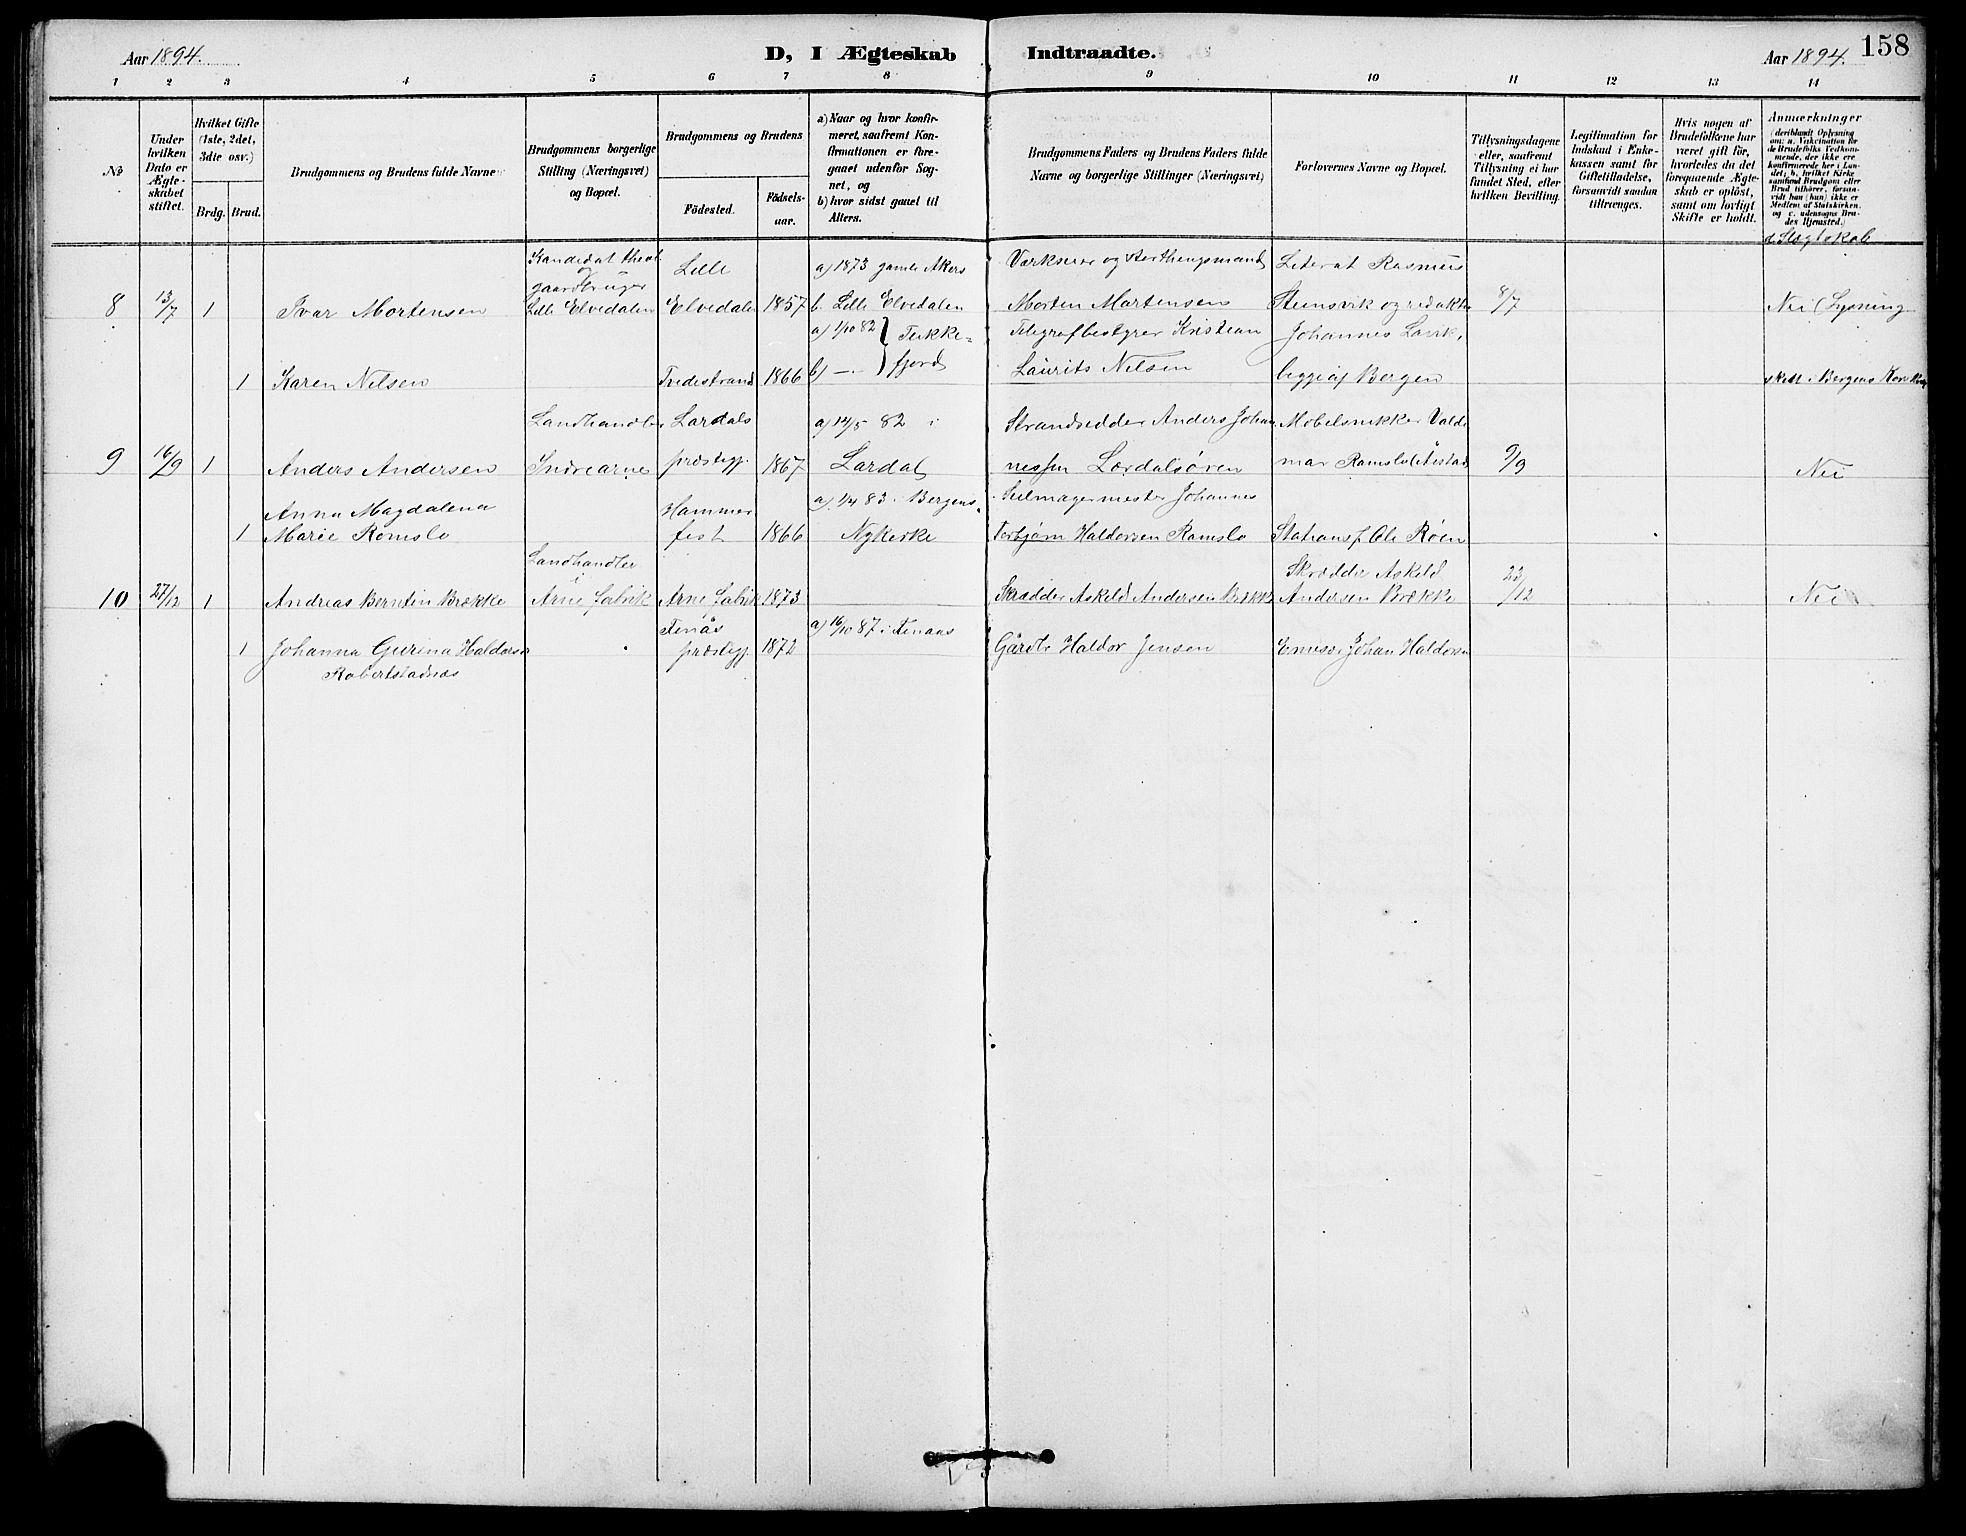 Aar 1894.
D, I Ægteskab Indtraadte.
Aar 1894.
158
1 2 3 4 5 6 7 8 9 10 11 12 13 14
No
Under hvilken Dato er Ægteskabet stiftet.
Hvilket Gifte (1ste, 2det, 3die osv.)
Brdg. Brud.
Brudgommens og Brudens fulde Navne.
Brudgommens borgerlige Stilling (Næringsvei) og Bopæl.
Brudgommens og Brudens
Födested.
Födselsaar.
a) Naar og hvor konfirmeret, saafremt Konfirmationen er foregaaet udenfor Sognet, og
b) hvor sidst gaaet til Alters.
Brudgommens Faders og Brudens Faders fulde Navne og borgerlige Stillinger (Næringsvei)
Forlovernes Navne og Bopæl.
Tillysningsdagene eller, saafremt Tillysning ei har fundet Sted, efter hvilken Bevilling.
Legitimation for Indskud i Enkekassen samt for Giftetilladelse, forsaavidt saadan tiltrænges.
Hvis nogen af Brudefolkene har været gift før, hvorledes da det foregaaende Ægteskab er oplöst, samt om lovligt Skifte er holdt.
Anmærkninger (deriblandt Oplysning om: a. Vakcination for de Brudefolks Vedkommende, der ikke ere konfirmerede her i Landet; b. hvilket Kirkesamfund Brudgom eller Brud tilhører, forsavidt han (hun) ikke er Medlem af Statskirken, og c. udensogns Brudes Hjemsted.)
d. Slægtskab
8 13/7 1 Ivar Mortensen
Kandidat theol og gaardbruger Lille Elvedalen
Lille Elvedalen 1857
a) 1873 gamle Akers
b. Lille Elvedalen
Morten Mortensen
Literat Rasmus Steinsvik og redaktør Johannes Lavik, begge af Bergen
8/7
Nei (Lysning
1 Karen Nilsen
Tvedestrand 1866
a) 1/10 82
b) —
Telegrafbestyrer Kristian Laurits Nilsen
skett i Bergens
9 16/9 1 Anders Andersen
Landhandler Indrearne
Lardals præstegj. 1867
a) 14/5 82 i Lardal
Strandsidder Anders Johannessen Lærdalsøren
Møbelsnikker Valdemar Romslo
9/9
Nei
1 Anna Magdalena Marie Romslo
Hammerfest 1866
a) 1/4 83 i Bergens Nykirke
Seilmagermester Johannes Torbjørn Haldorsen Romslo
Ole Røen
10 27/12 1 Andreas Berntin Brække
Landhandler i Arne fabrik
Arne fabrik 1873
Skrædder Askild Andersen Brække
Skrædder Askild Andersen Brække
23/12
Nei
1 Johanna Gurina Haldorsen Robertstadnæs
Finås præstegj. 1872
a) 16/10 87 i Finaas
Gårdbr Haldor Jensen
Johan Haldorsen